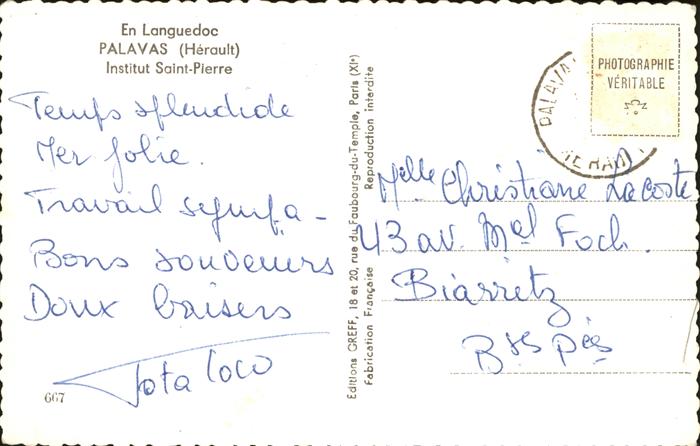 En Languedoc
PALAVAS (Hérault)
Institut Saint-Pierre
Temps splendide
Mer jolie.
Travail sympa -
Bons souvenirs
Doux baisers
Tota Coco
667
Editions GREFF, 18 et 20, rue du Faubourg-du-Temple, Paris (XIe)
Fabrication Française Reproduction interdite
PHOTOGRAPHIE
VÉRITABLE
PALAVA
HERAU
Melle Christiane Lacoste
43 av. Mal Foch.
Biarritz
Bses Pés